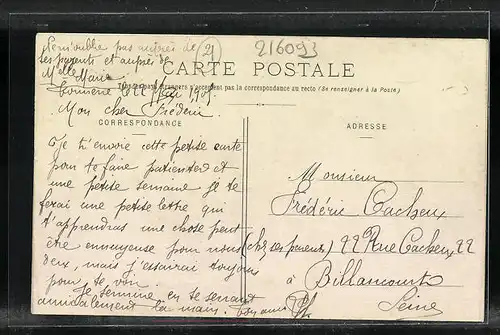 N'emoublie pas auprès de
ses parents et auprès de
Melle Marie
(21)
216093
CARTE POSTALE
Tous les pays étrangers n'acceptent pas la correspondance au recto (Se renseigner à la Poste)
le 27 Mai 1905
Mon cher Frédéric
CORRESPONDANCE
ADRESSE
Je t'envoie cette petite carte
pour te faire patienter d'ici
une petite semaine je te
ferai une petite lettre qui
t'apprendras une chose peut
être ennuyeuse pour nous
deux, mais j'essairai toujours
pour te voir.
Je termine en te serrant
amicalement la main. Ton ami
Monsieur
Frédéric Cacheux
(chez ses parents) 22 Rue Cacheux 22
à Billancourt
Seine